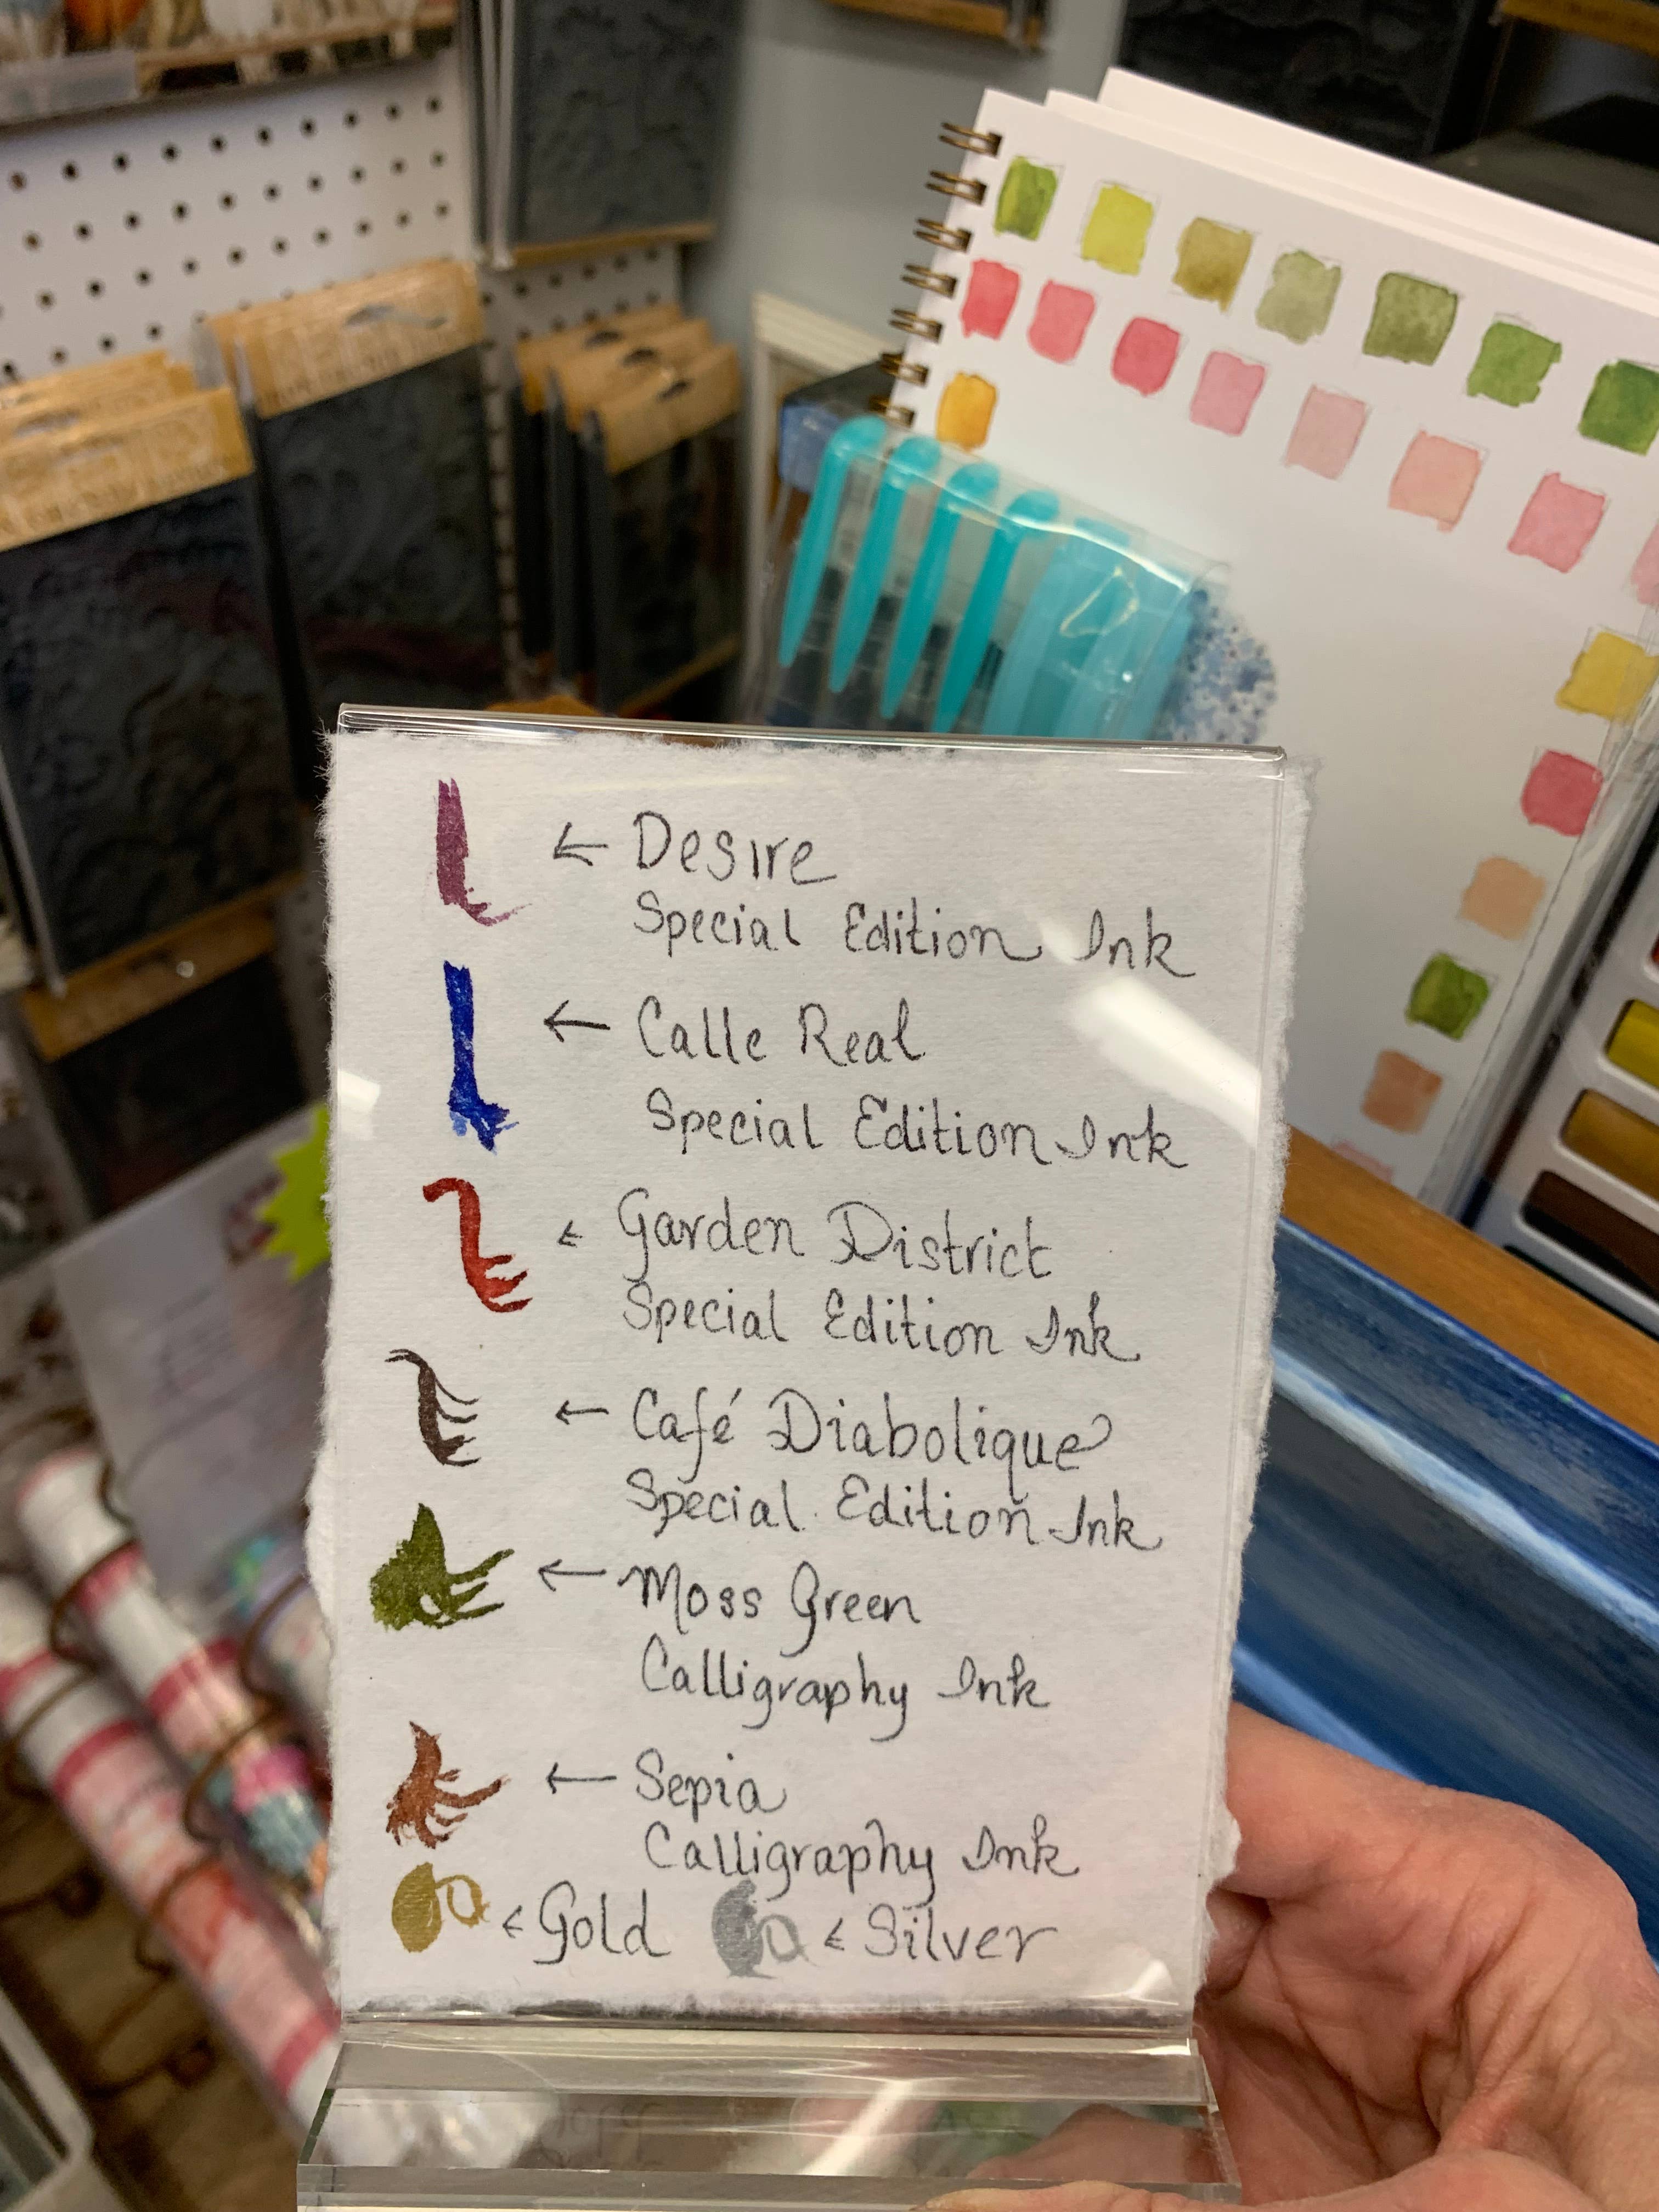 ← Desire
Special Edition Ink
← Calle Real
Special Edition Ink
← Garden District
Special Edition Ink
← Café Diabolique
Special Edition Ink
← Moss Green
Calligraphy Ink
← Sepia
Calligraphy Ink
← Gold ← Silver